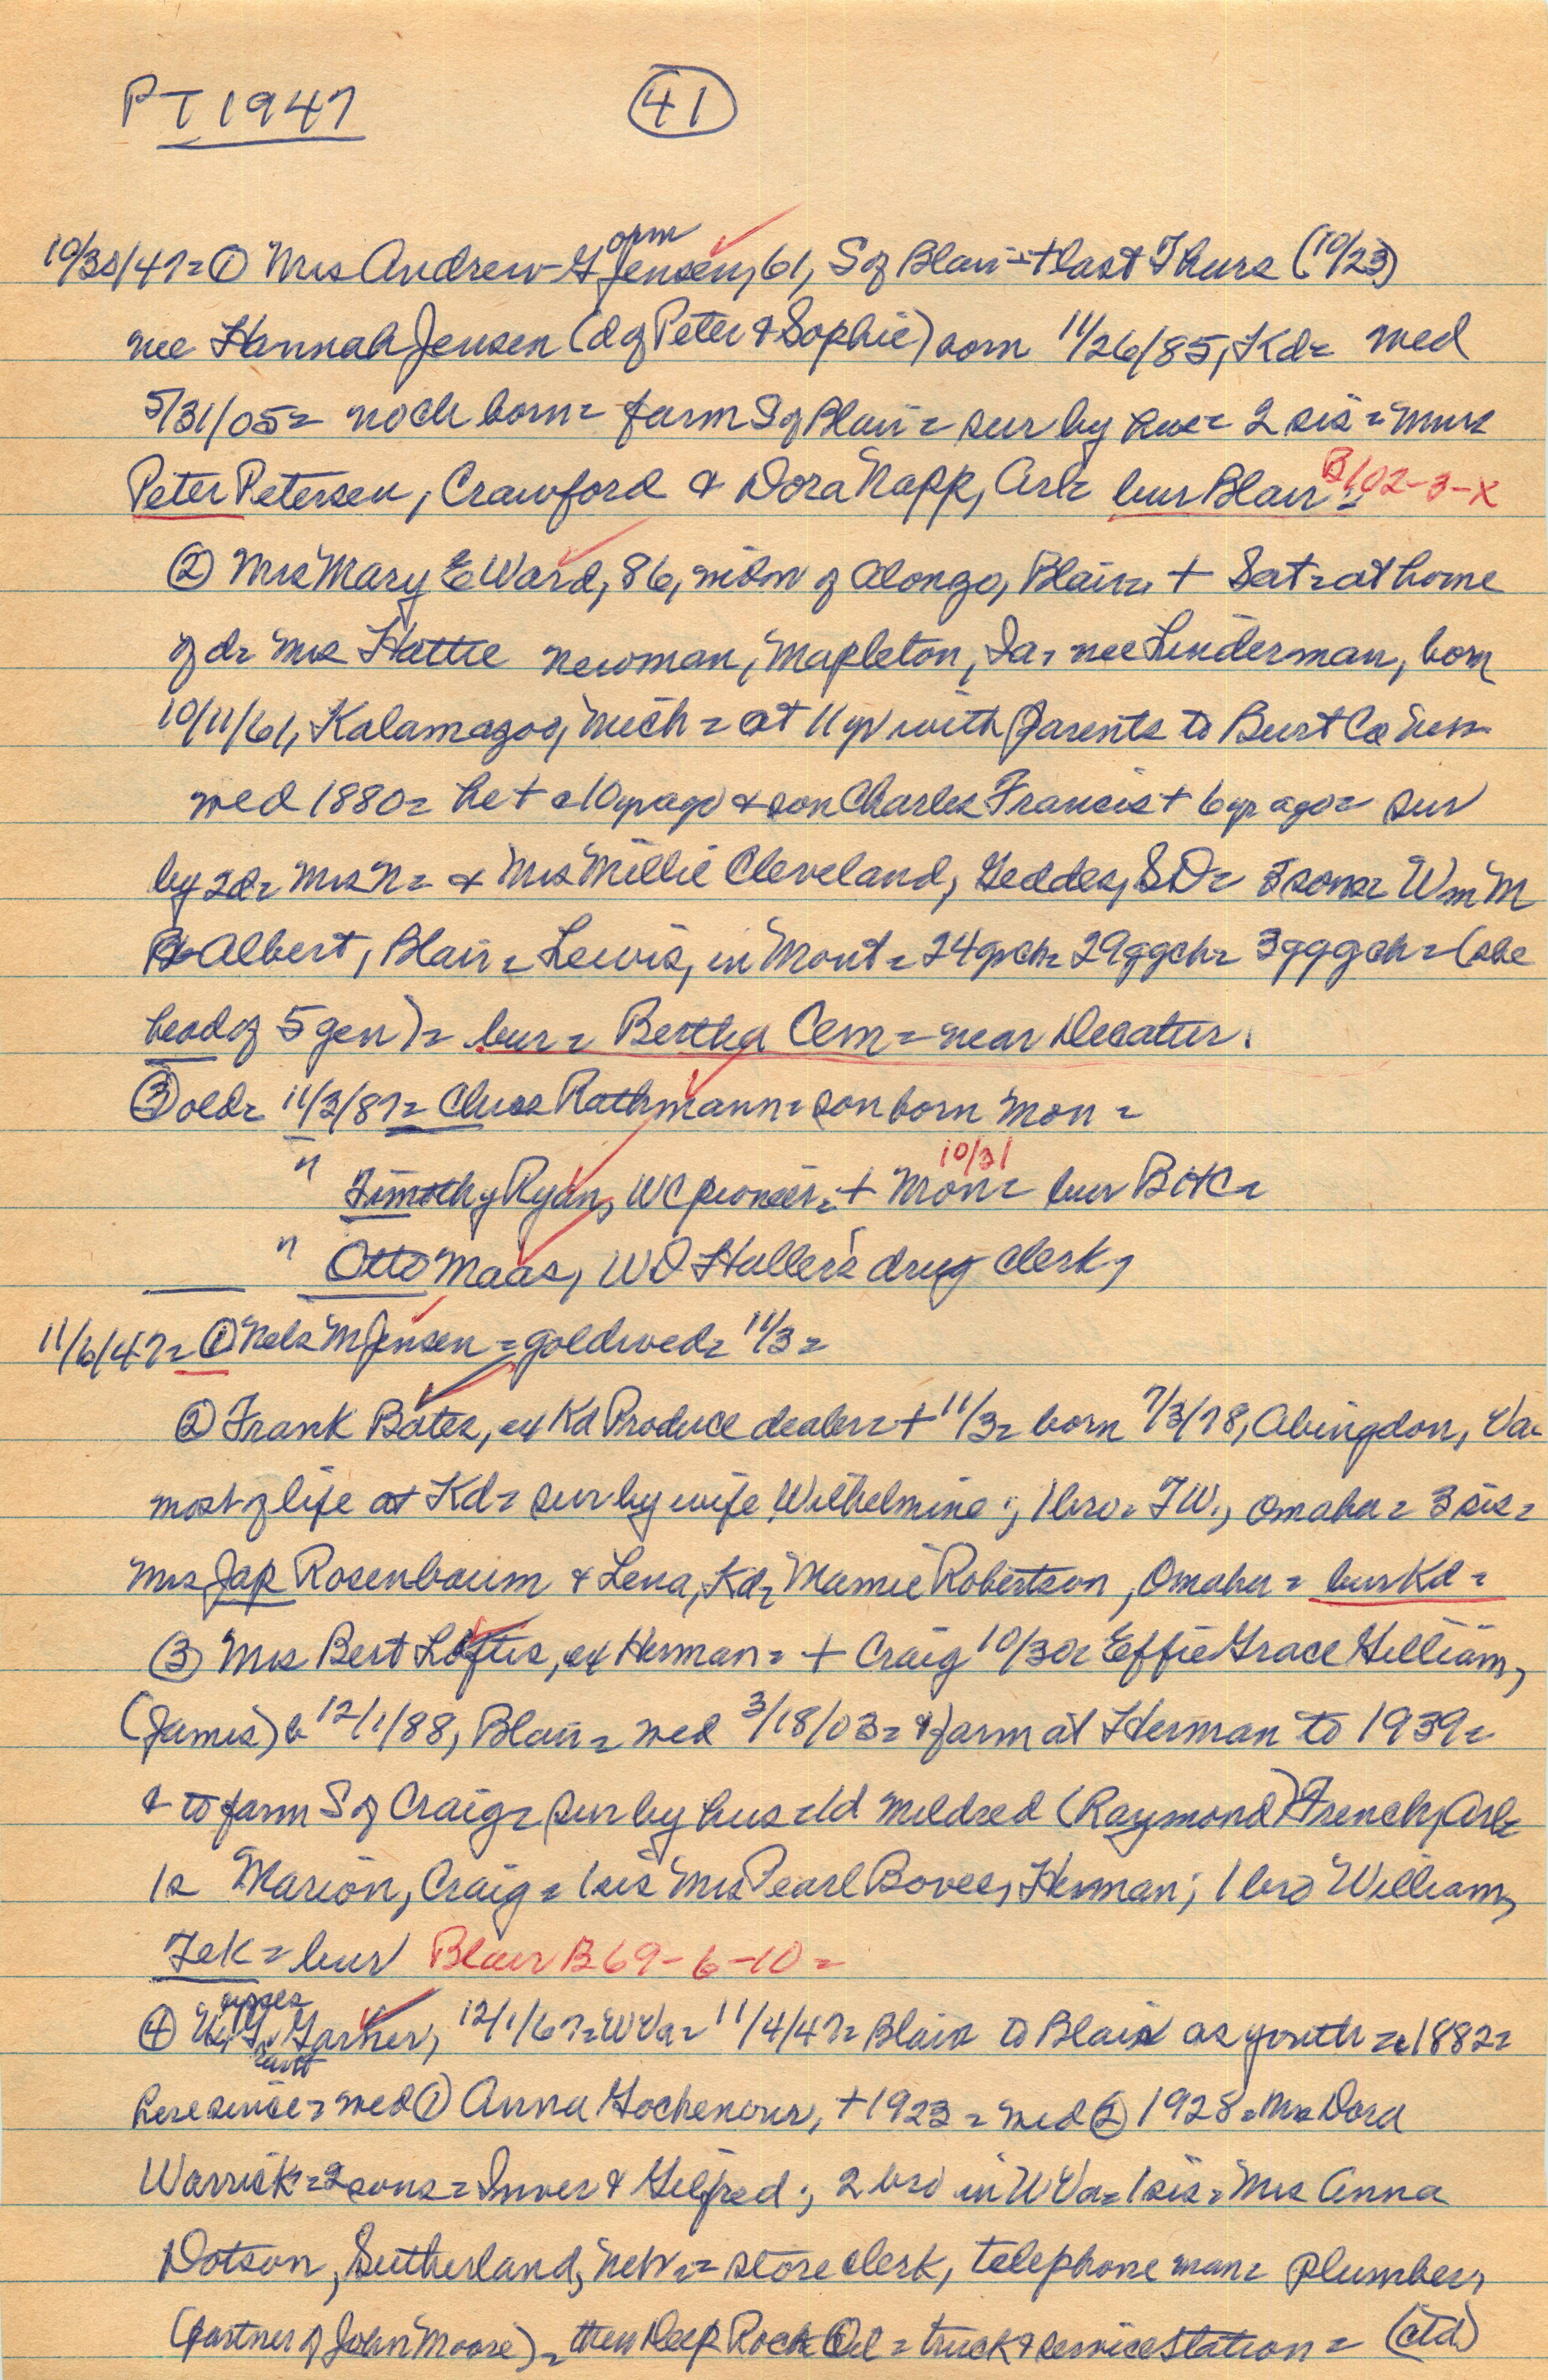 PT 1947 (41)
10/30/47= ① Mrs Andrew G Jensen, 61, S of Blair = + last Thurs (10/23)
nee Hannah Jensen (d of Peter & Sophie) born 11/26/85, Kd= wed
5/31/05= no ch born= farm S of Blair= sur by hus= 2 sis= Mmes
Peter Petersen, Crawford & Dora Rapp, Ark= bur Blair= B102-3-X
② Mrs Mary E Ward, 86, widow of Alonzo, Blair, + Sat= at home
of d= Mrs Hattie Newman, Mapleton, Ia, nee Linderman, born
10/11/61, Kalamazoo, Mich= at 11 yr with parents to Burt Co
wed 1880= he + c 10 yr ago & son Charles Francis + 6 yr ago= sur
by 2d= Mrs N= & Mrs Millie Cleveland, Geddes, SD= 3 sons= Wm M
Albert, Blair= Lewis, in Mont= 24 gch= 29 ggch= 3 gggch= (she
head of 5 gen)= bur= Bertha Cem= near Decatur.
③ old= 11/3/87= Chris Rathmann= son born Mon=
" Timothy Ryan, WC pioneer= + Mon= 10/31 bur BHC=
" Otto Maas, WD Haller's drug clerk,
11/6/47= ① Nels M Jensen= gold wed= 11/3=
② Frank Bates, ex Kd Produce dealer= + 11/3= born 7/3/78, Abingdon, Va=
most of life at Kd= sur by wife Wilhelmine; 1 bro= FW., Omaha= 3 sis=
Mrs Jap Rosenbaum & Lena, Kd, Mamie Robertson, Omaha= bur Kd=
③ Mrs Bert Loftis, ex Herman= + Craig 10/30= Effie Grace Gilliam,
(James) b 12/1/88, Blair= wed 3/18/03= & farm at Herman to 1939=
& to farm S of Craig= sur by hus= 1d Mildred (Raymond) French, Ark=
1s Marion, Craig= 1 sis Mrs Pearl Bovee, Herman; 1 bro William,
Tek= bur Blair B69-6-10=
④ Ulysses Grant Garner, 12/1/67= W Va= 11/4/47= Blair to Blair as youth= c 1882=
here since= wed ① Anna Gochenour, + 1923= wed ② 1928= Mrs Dora
Warrick= 2 sons= & Gilfred; 2 bro in W Va= 1 sis= Mrs Anna
Dotson, Sutherland, Neb= store clerk, telephone man= plumber,
(partner of John Moore)= then Deep Rock Oil= truck & service station= (ctd)